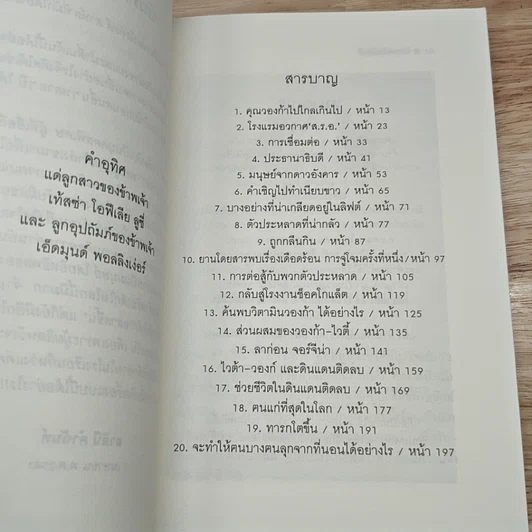 คำอุทิศ
แด่ลูกสาวของข้าพเจ้า
เท้สซ่า โอฟีเลีย ลูซี่
และ ลูกอุปถัมภ์ของข้าพเจ้า
เอ็ดมุนด์ พอลลิงเง่อร์
สารบาญ
1. คุณวองก้าไปไกลเกินไป / หน้า 13
2. โรงแรมอวกาศ'ส.ร.อ.' / หน้า 23
3. การเชื่อมต่อ / หน้า 33
4. ประธานาธิบดี / หน้า 41
5. มนุษย์จากดาวอังคาร / หน้า 53
6. คำเชิญไปทำเนียบขาว / หน้า 65
7. บางอย่างที่น่าเกลียดอยู่ในลิฟต์ / หน้า 71
8. ตัวประหลาดที่น่ากลัว / หน้า 77
9. ถูกกลืนกิน / หน้า 87
10. ยานโดยสารพบเรื่องเดือดร้อน การจู่โจมครั้งที่หนึ่ง/ หน้า 97
11. การต่อสู้กับพวกตัวประหลาด / หน้า 105
12. กลับสู่โรงงานช็อคโกแล็ต / หน้า 119
13. ค้นพบวิตามินวองก้า ได้อย่างไร / หน้า 125
14. ส่วนผสมของวองก้า-ไวตี้ / หน้า 135
15. ลาก่อน จอร์จีน่า / หน้า 141
16. ไวต้า-วองก์ และดินแดนติดลบ / หน้า 159
17. ช่วยชีวิตในดินแดนติดลบ / หน้า 169
18. คนแก่ที่สุดในโลก / หน้า 177
19. ทารกโตขึ้น / หน้า 191
20. จะทำให้คนบางคนลุกจากที่นอนได้อย่างไร / หน้า 197